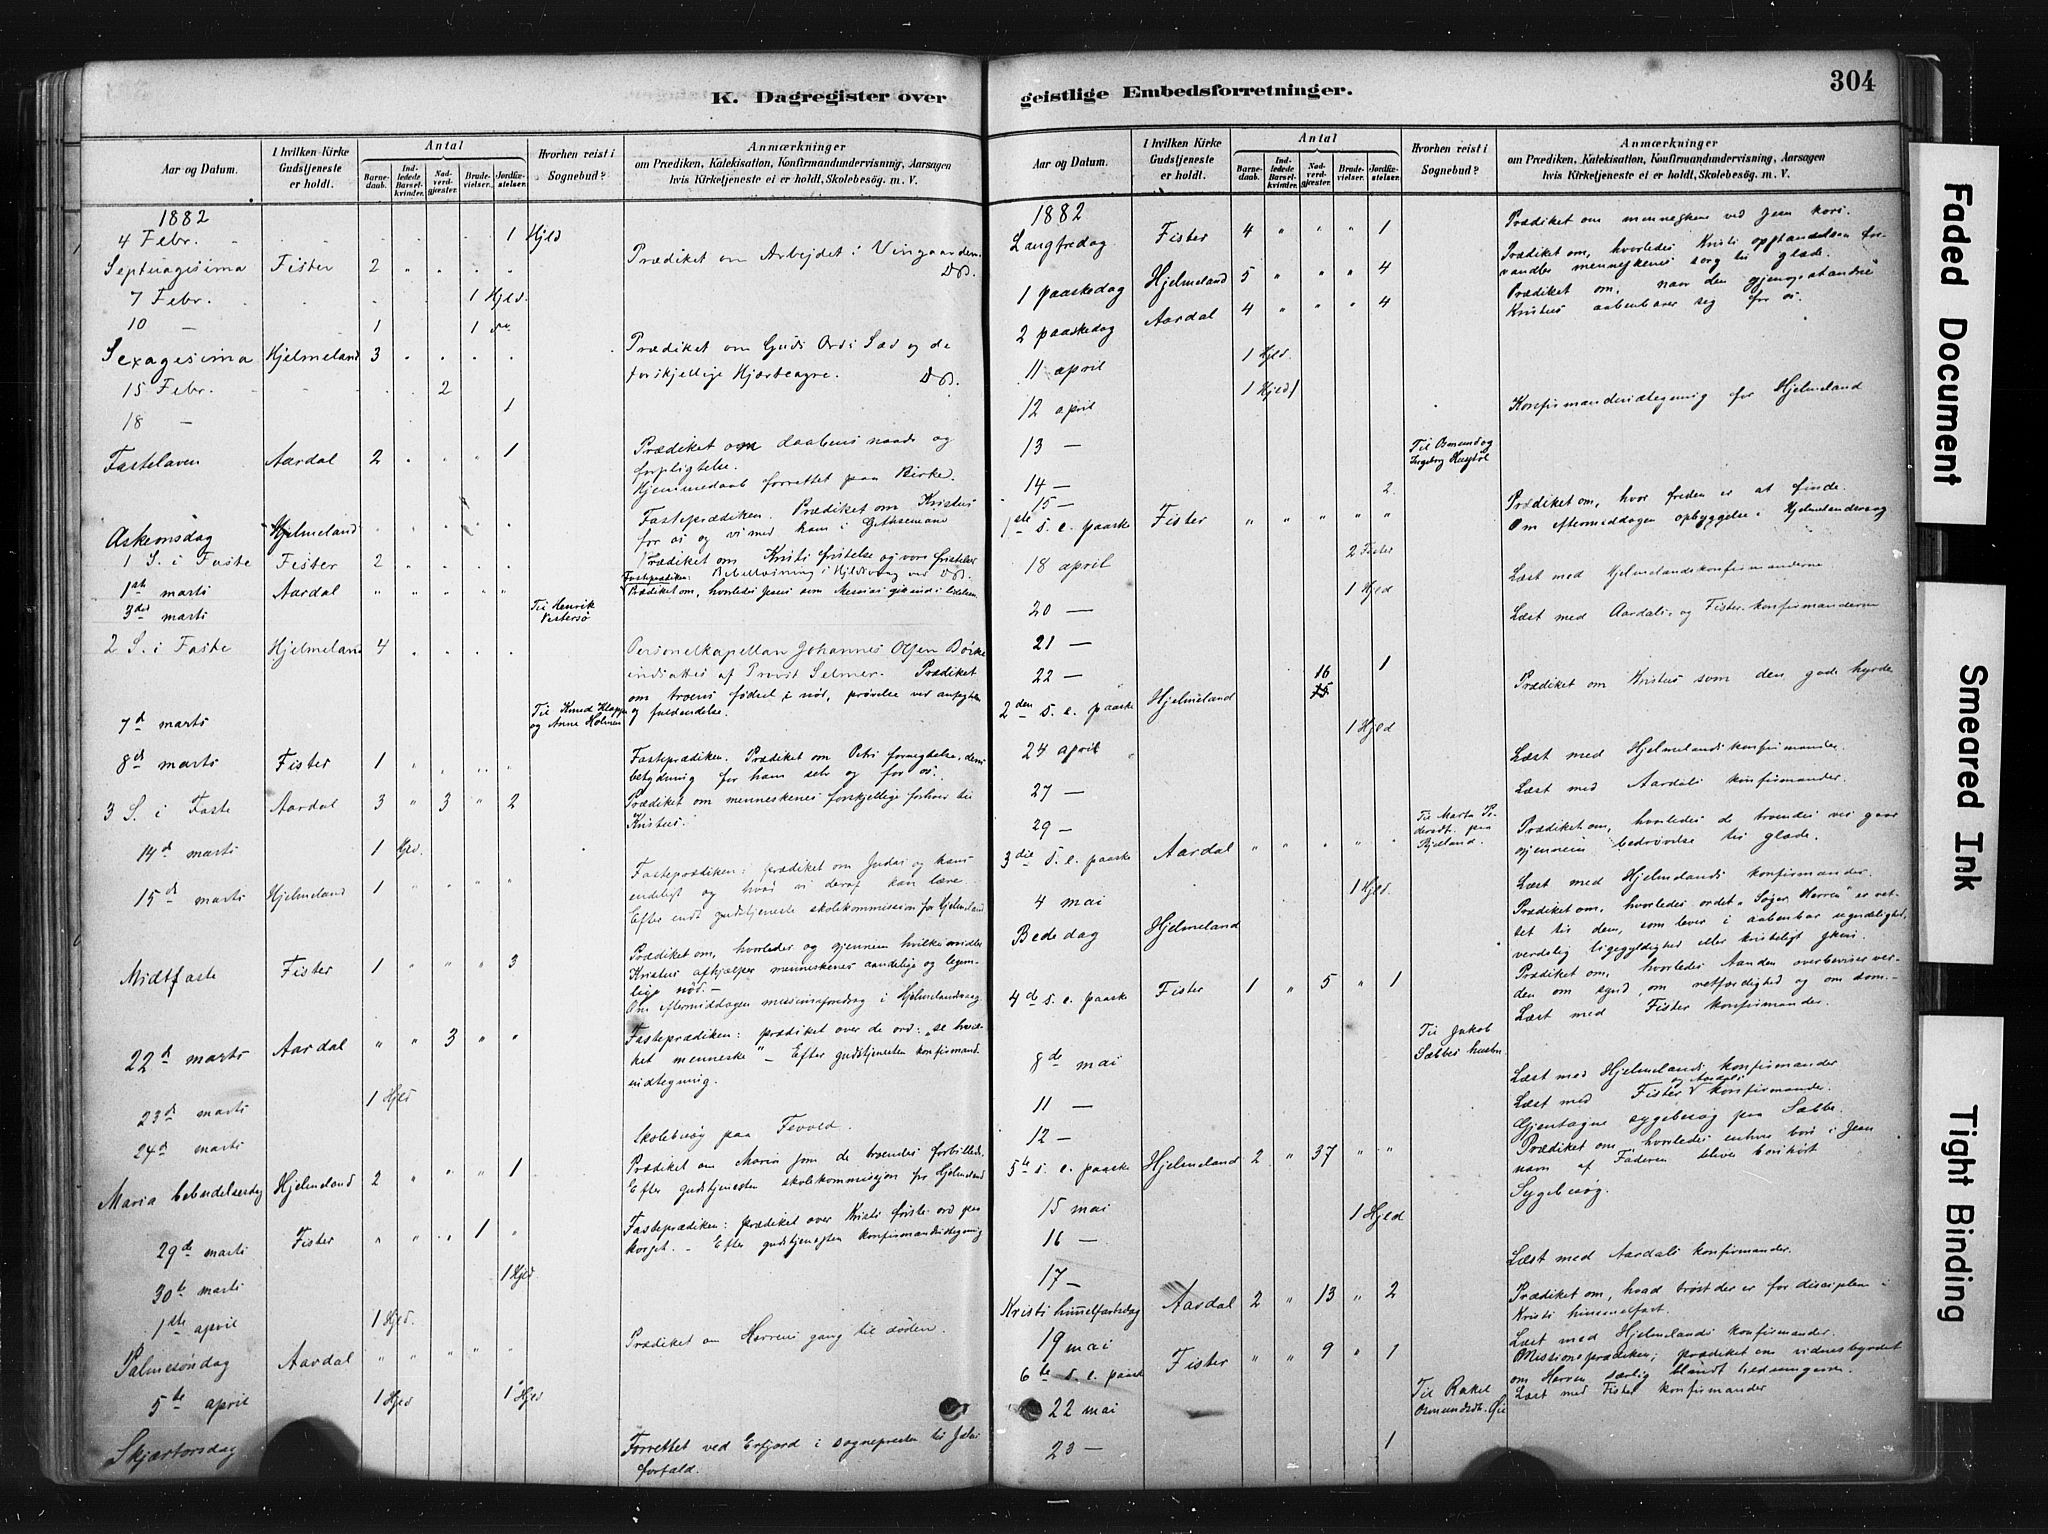 K. Dagregister over
Aar og Datum.
I hvilken Kirke Gudstjeneste er holdt.
Antal
Barnedaab.
Indledede Barselkvinder.
Nadverdgjester.
Brudevielser.
Jordfæstelser.
Hvorhen reist i Sognebud?
Anmærkninger
om Prædiken, Katekisation, Konfirmandundervisning, Aarsagen
hvis Kirketjeneste ei er holdt, Skolebesøg. m. V.
1882
4 Febr. 1 Hjld
Septuagesima Fister 2 Prædiket om Arbejdet i Vingaarden.
7 Febr. 1 Hjld.
10 — 1 1
Sexagesima Hjelmeland 3 Prædiket om Guds Ords Sæd og de
forskjellige Hjerteagre.
15 Febr. 2
18 — 1
Fastelaven Aardal 2 1 Prædiket om daabens naade og
forpligtelse.
Hjemmedaab forrettet paa Birke.
Askeonsdag Hjelmeland Fasteprædiken. Prædiket om Kristus
for os og vi med ham i Gethsemane
1 S. i Faste Fister 2 Prædiket om Kristi fristelse og vore fristelser
1ste marts Aardal Prædiket om, hvorledes Jesus som Messias
3die marts Til Henrik
2 S. i Faste Hjelmeland 4 Personelkapellan Johannes Olsen Børke
indsættes af Provst Selmer. Prædiket
om troens fødsel i nød, prøvelse ved anfegtelse
og fuldendelse.
7d marts Til Knud
og Anne Holmen
8d marts Fister 1 Fasteprædiken. Prædiket om Petri fornegtelse, dens
betydning for ham selv og for os.
3 S. i Faste Aardal 3 " 3 " 2 Prædiket om menneskenes forskjellige forhold til
Kristus.
14d marts 1 Hjld.
15d marts Hjelmeland 1 " " " " Fasteprædiken: prædiket om Judas og hans
endeligt og hvad vi deraf kan lære.
Efter endt gudstjeneste skolekommission for Hjelmeland
Midtfaste Fister 1 " " " 3 Prædiket om, hvorledes og gjennem hvilke midler
Kristus afhjælper menneskenes aandelige og legem-
lige nød. —
Om eftermiddagen missionsforedrag i Hjelmelandsvaag
22d marts Aardal " " 3 " " Fasteprædiken: prædiket over de ord: „se hvil-
ket menneske" — Efter gudstjenesten konfirmand-
indtegning.
23d marts 1 Hjld
24d marts Skolebesøg paa Tevold.
Maria bebudelsesdag Hjelmeland 2 " " " 1 Prædiket om Maria som de troendes forbillede.
Efter gudstjenesten skolekommission for Hjelmeland
29de marts Fister " " " 1 " Fasteprædiken: prædiket over Kristi første ord paa
korset. — Efter gudstjenesten konfirmandindtegning
30te marts 1 Hjld
1ste april 1 Hjld.
Palmesøndag Aardal " " " " " Prædiket om Herrens gang til døden.
5te april 1 Hjld 1 Hjld
Skjærtorsdag Forrettet ved Erfjord i sognepresten til Jelsi
forfald.
geistlige Embedsforretninger.
304
Aar og Datum.
I hvilken Kirke Gudstjeneste er holdt.
Antal
Barnedaab.
Indledede Barselkvinder.
Nadverdgjester.
Brudevielser.
Jordfæstelser.
Hvorhen reist i Sognebud?
Anmærkninger
om Prædiken, Katekisation, Konfirmandundervisning, Aarsagen
hvis Kirketjeneste ei er holdt, Skolebesøg. m. V.
1882
Langfredag Fister 4 " " " 1 Prædiket om menneskene ved Jesu kors.
1 paaskedag Hjelmeland 5 " " " 4 Prædiket om, hvorledes Kristi opstandelse for-
vandler menneskenes sorg til glæde.
2 paaskedag Aardal 4 " " " 4 Prædiket om, naar den gjenopstandne
Kristus aabenbarer seg for os.
11 april 1 Hjld.
12 april 1 Hjld
13 — Konfirmandindtegning for Hjelmeland
14 — Til Osmund og
Ingeborg
15 — 2.
1ste S. e. paaske Fister " " " " " Prædiket om, hvor freden er at finde.
Om eftermiddagen opbyggelse i Hjelmelandsvaag
18 april 2 Fister
20 — 1 Hjld Læst med Hjelmelandskonfirmanderne
21 — Læst med Aardals- og Fister-konfirmanderne
22 — 1
2den S. e. paaske Hjelmeland 16 Prædiket om Kristus som den gode hyrde
24 april 1 Hjld
27 — Læst med Hjelmelands konfirmander.
29 — Læst med Aardals konfirmander.
3die S. e. paaske Aardal " " " " " Til Marta Pe-
dersdt. paa
Prædiket om, hvorledes de troendes vei gaar
gjennem bedrøvelse til glæde.
4 mai 1 Hjld. Læst med Hjelmelands konfirmander.
Bededag Hjelmeland Prædiket om, hvorledes ordet „Søger Herren" er ret-
tet til dem, som lever i aabenbar ugudelighed,
verdslig ligegyldighed eller kristeligt skin.
4de S. e. paaske Fister 1 " 5 " 1 Prædiket om, hvorledes Aanden overbeviser ver-
den om synd, om retfærdighed og om dom. —
Læst med Fister konfirmander.
8de mai Til Jakob
Sæbbes hustru
11 — Læst med Hjelmelands konfirmander
12 — Læst med Fister og Aardals konfirmander.
Gjentagne sygebesøg paa Sæbbe.
5te S. e. paaske Hjelmeland 2 " 37 " " Prædiket om, hvorledes enhver bøn i Jesu
navn af Faderen bliver bønhørt
15 mai Sygebesøg.
16 — 1 Hjld
17 — Læst med Aardals konfirmander.
Kristi himmelfartsdag Aardal 2 " 13 " 2 Prædiket om, hvad trøst der er for disciplene i
Kristi himmelfart.
19 mai Læst med Hjelmelands konfirmander.
6te S. e. paaske Fister " " 9 " 1 Missionsprædiken; prædiket om vidnesbyrdet
om Herren særlig blandt hedningerne.
22 mai Til Rakel
Osmundsdt. Læst med Fister konfirmander
23 — 1
Faded Document
Smeared Ink
Tight Binding